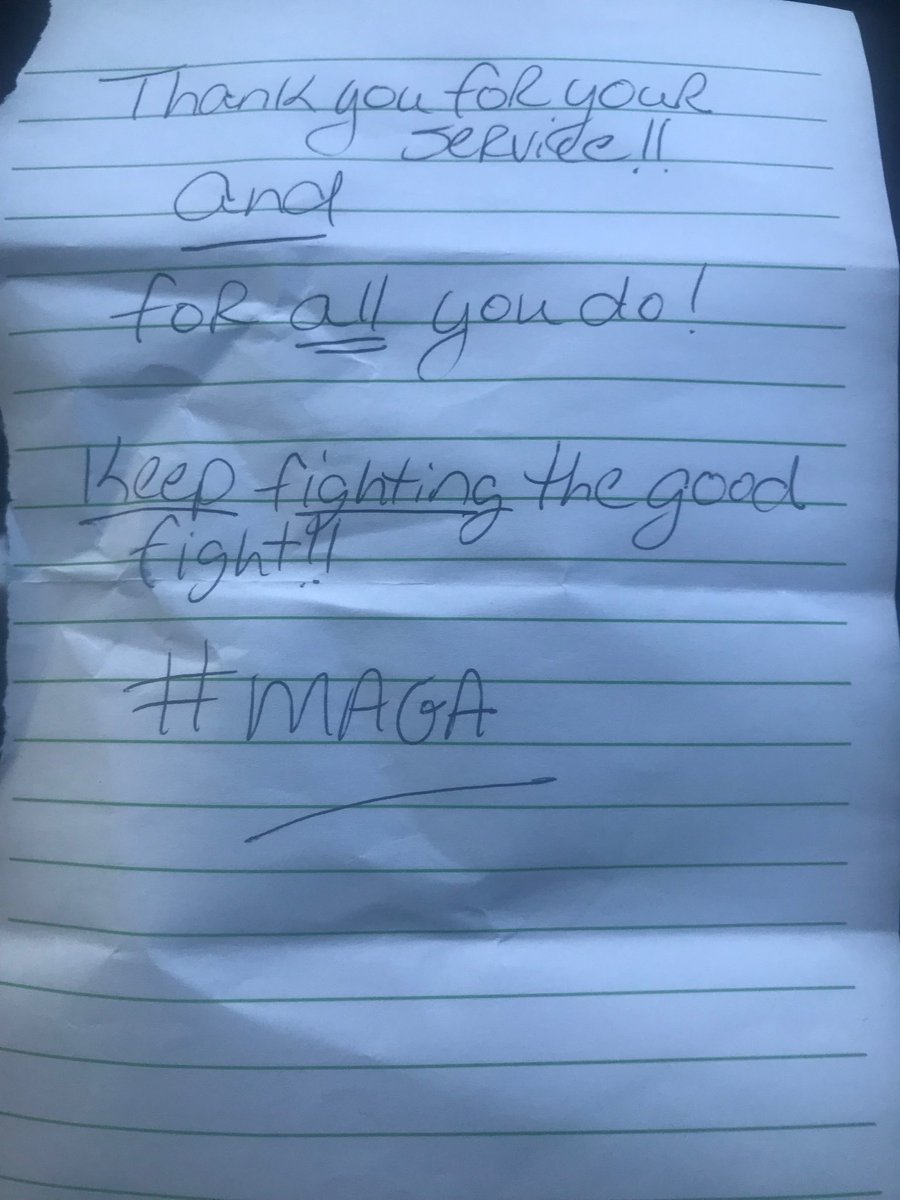 Thank you foR youR
seRvice!!
and
foR all you do!
Keep fighting the good
fight!!
#MAGA